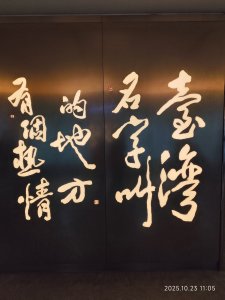 有個熱情
的地方
名字叫
臺灣
2025.10.23 11:05